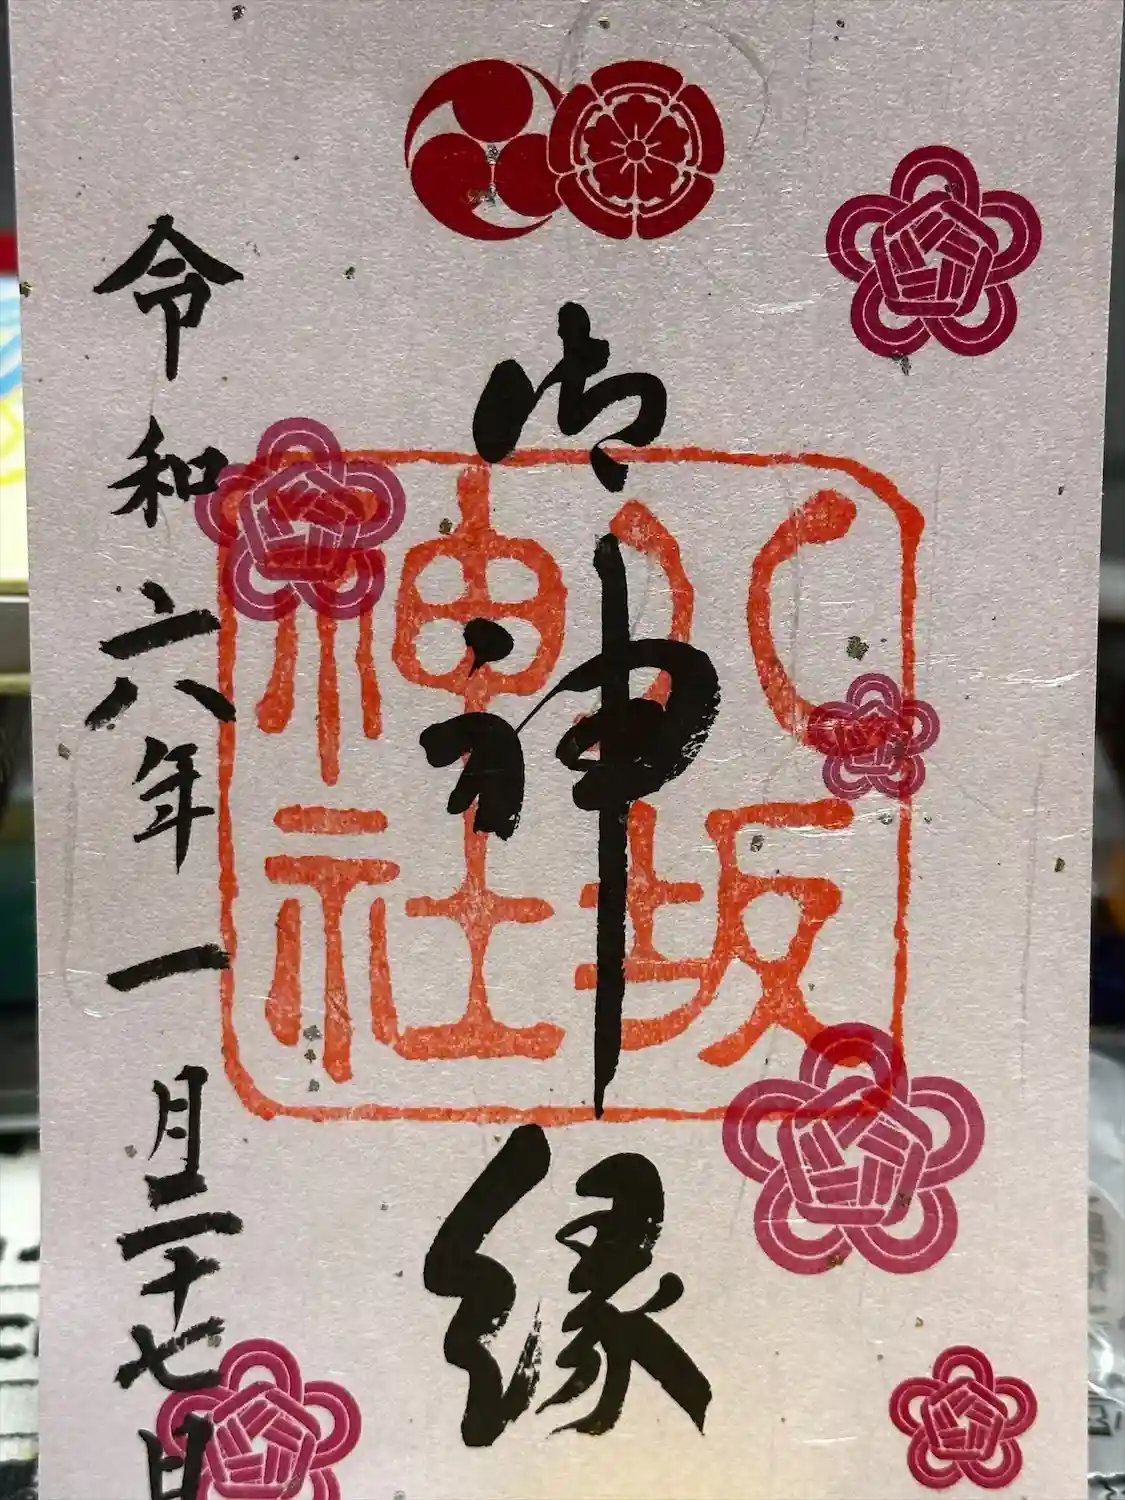 御神縁
八坂
神社
令和六年一月二十七日